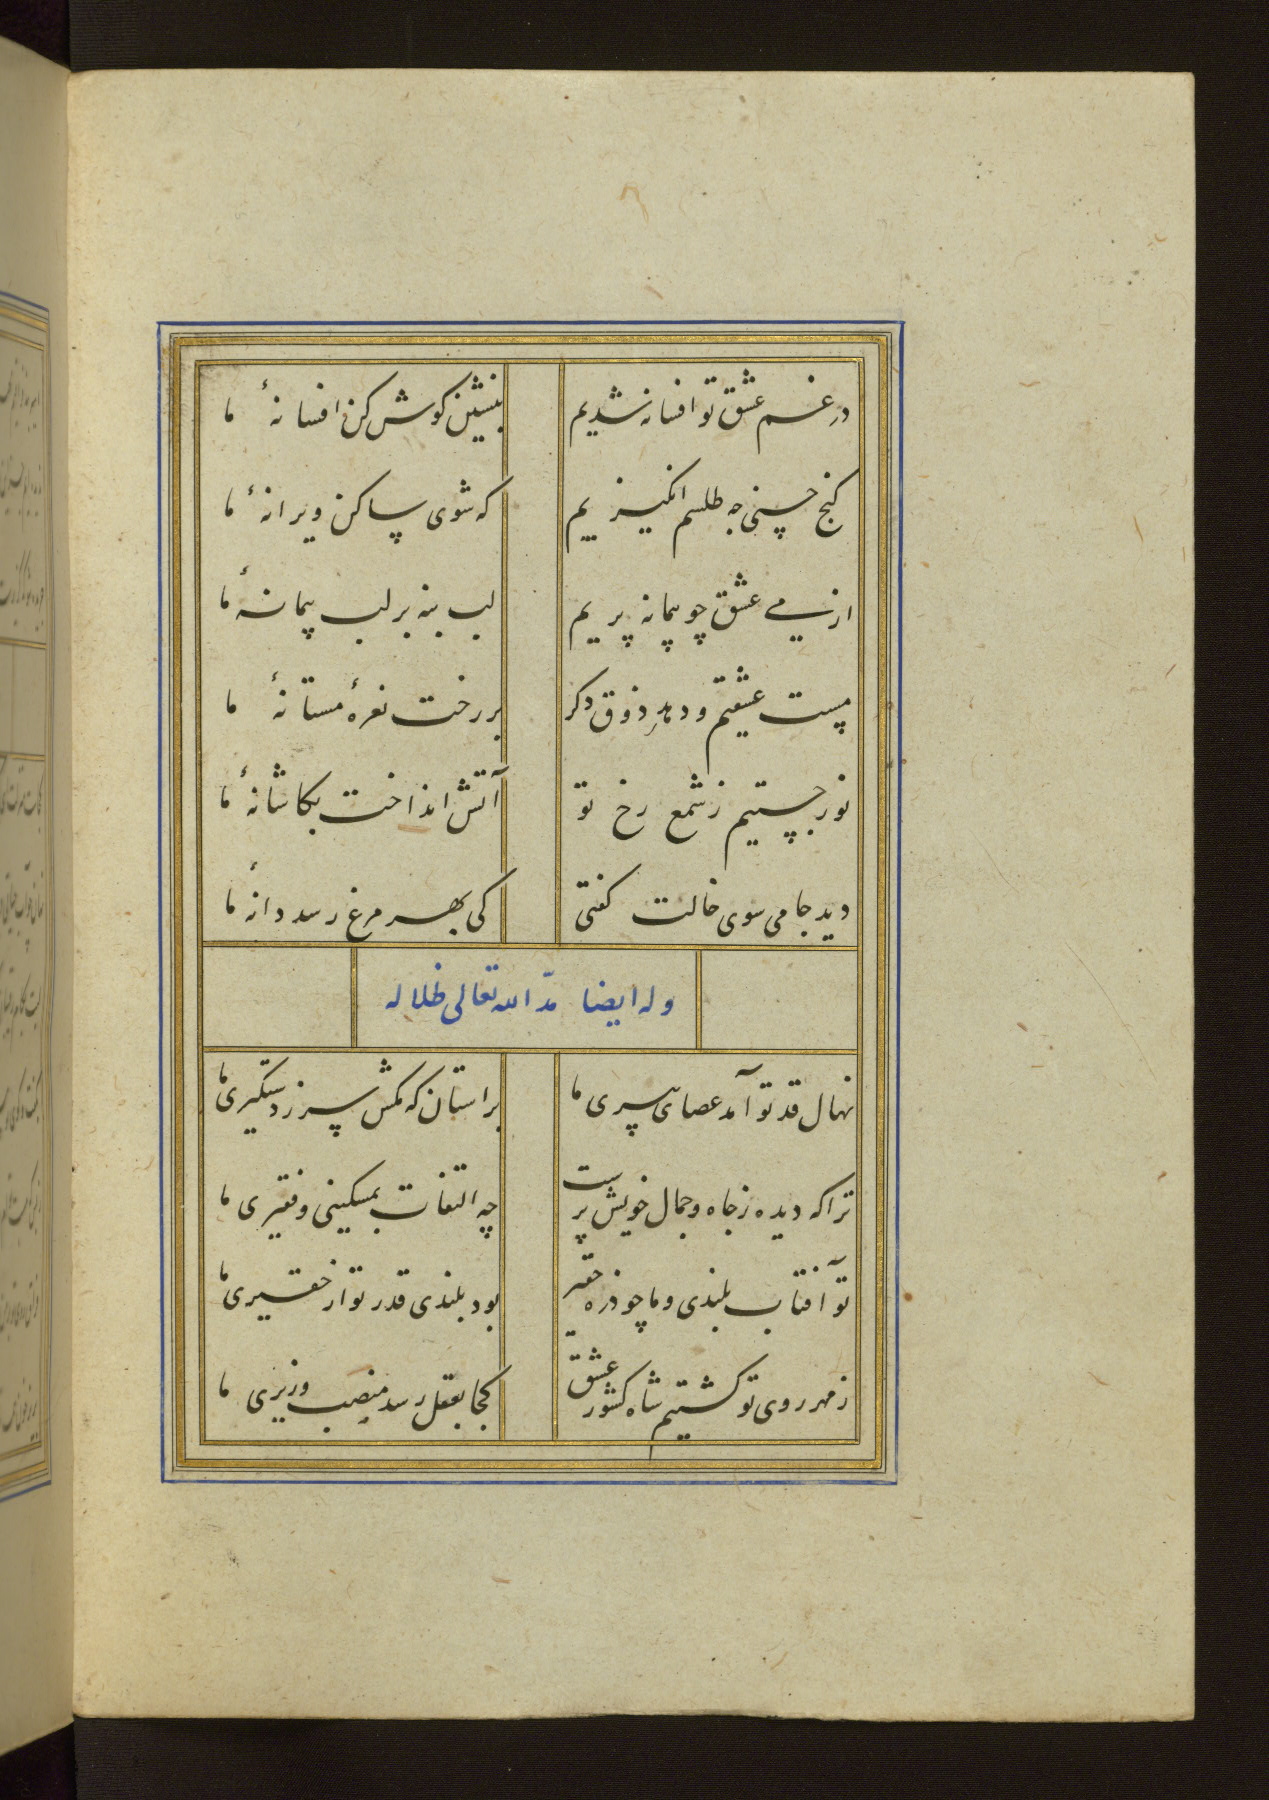 در غم عشق تو افسانه شدیم بنشین کوش کن افسانهٔ ما
کنج حسنی چه طلسم انکیزیم که شوی ساکن ویرانهٔ ما
از می عشق چو پیمانه پریم لب بنه بر لب پیمانهٔ ما
مست عشقیم و دهد ذوق دکر بر رخت نعرهٔ مستانهٔ ما
نور جستیم ز شمع رخ تو آتش انداخت بکاشانهٔ ما
دید جامی سوی خالت کفتی کی بهر مرغ رسد دانهٔ ما
وله ایضا مدّ الله تعالی ظلاله
نهال قد تو آمد عصای پیری ما براستان که مکش سر ز دستکیری ما
ترا که دیده ز جاه و جمال خویش پرست چه التفات بمسکینی و فقیری ما
تو آفتاب بلندی و ما چو ذره حقیر بود بلندی قدر تو از حقیری ما
ز مهر روی تو کشتیم شاه کشور عشق کجا بعقل رسد منصب وزیری ما